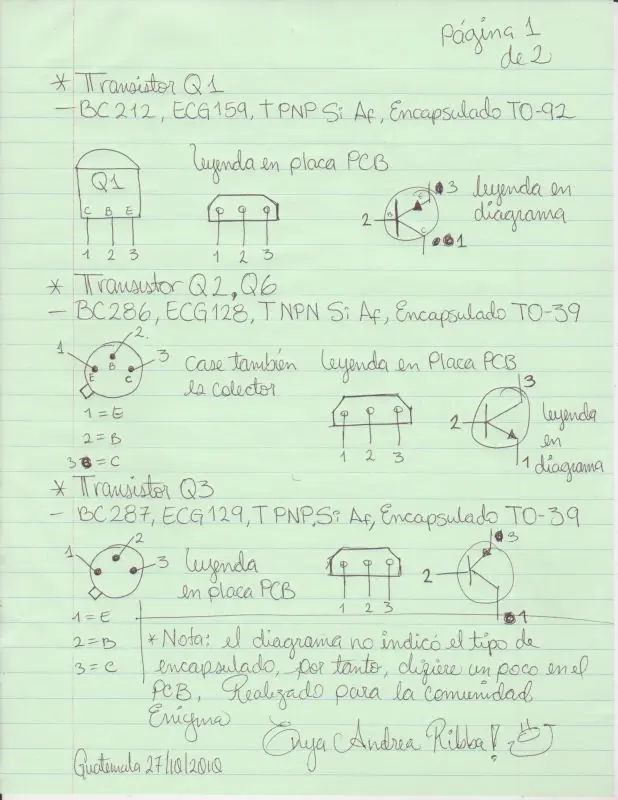 Página 1
de 2
* Transistor Q1
- BC212, ECG159, T PNP Si Af, Encapsulado TO-92
leyenda en placa PCB
Q1
C B E
1 2 3
1 2 3
2
B
E
C
3
1
leyenda en
diagrama
* Transistor Q2, Q6
- BC286, ECG128, T NPN Si Af, Encapsulado TO-39
1
2.
3
E
B
C
case también
es colector
leyenda en Placa PCB
1 2 3
2
3
1
leyenda
en
diagrama
1 = E
2 = B
3 = C
* Transistor Q3
- BC287, ECG129, T PNP, Si Af, Encapsulado TO-39
1
2
3
leyenda
en placa PCB
1 2 3
2
3
1
1 = E
2 = B
3 = C
* Nota: el diagrama no indicó el tipo de
encapsulado, por tanto, difiere un poco en el
PCB, Realizado para la comunidad
Enigma
Enya Andrea Ribba!
Guatemala 27/10/2010